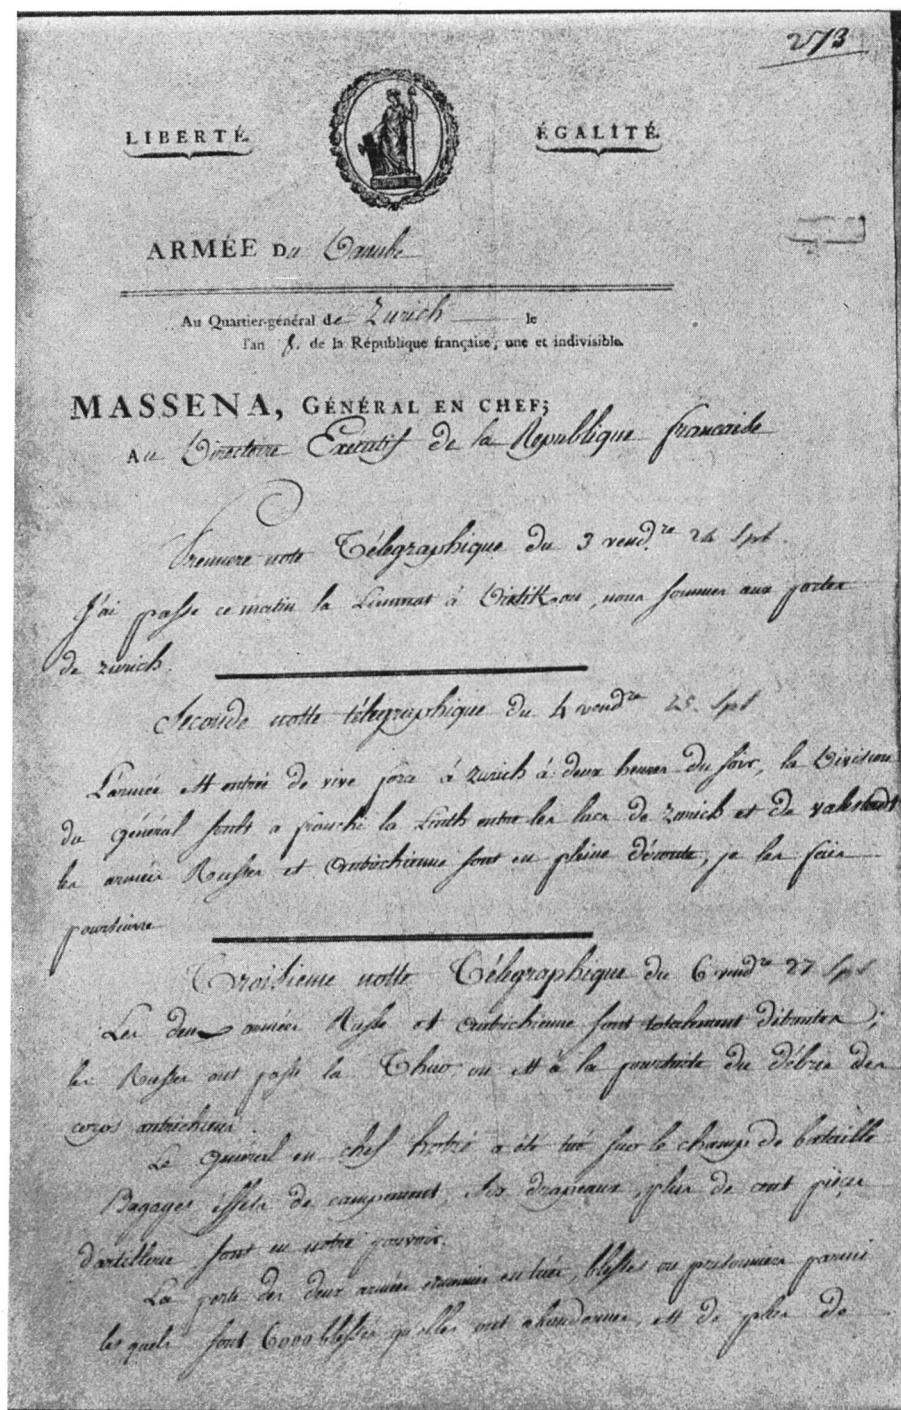 273
LIBERTÉ.
ÉGALITÉ.
ARMÉE Du Danube
Au Quartier-général de Zurich le
l'an 8. de la République française, une et indivisible.
MASSENA, GÉNÉRAL EN CHEF;
Au Directoire Executif de la Republique francaise
Premiere note Télegraphique du 3 vend.re 24 Spt.
J'ai passé ce matin la Limmat à Dietikon, nous sommes aux portes
de Zurich.
Seconde notte télegraphique du 4 vendre 25. Spt
L'armée est entrée de vive force à Zurich à deux heures du soir, la Division
du général Soult a franchi la Linth entre les lacs de Zurich et de Valestadt
les armées Russes et autrichienne sont en pleine déroute, je les fais
poursuivre
Troisieme notte Télegraphique du 6 vendre 27 Spt
Les deux armées Russe et autrichienne sont totalement détruites;
les Russes ont passé la Thur on est à la poursuite du débris des
corps autrichiens.
Le général en chef hotzé a été tué sur le champ de bataille
Bagages effets de campement, six drapeaux, plus de cent pièces
d'artillerie sont en notre pouvoir.
La perte des deux armées ennemies en tués, blessés ou prisonniers parmi
lesquels sont 6000 blessés qu'elles ont abandonnés, est de plus de